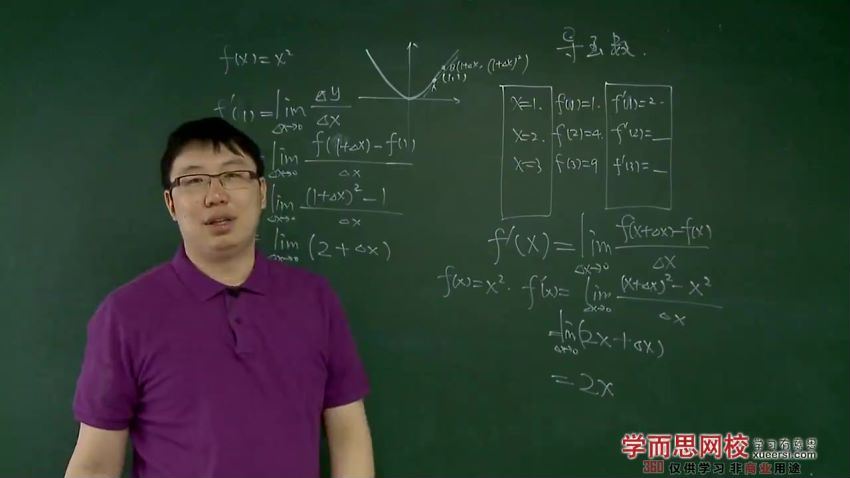 f(x)=x²
f'(1)=lim Δx→0 Δy/Δx
lim Δx→0 (f(1+Δx)-f(1))/Δx
lim Δx→0 ((1+Δx)²-1)/Δx
= lim Δx→0 (2+Δx)
B(1+Δx, (1+Δx)²)
(1,1)
导函数.
x=1. f(1)=1. f'(1)=2.
x=2. f(2)=4. f'(2)=__
x=3 f(3)=9 f'(3)=__
f'(x)=lim Δx→0 (f(x+Δx)-f(x))/Δx
f(x)=x². f'(x)= lim Δx→0 ((x+Δx)²-x²)/Δx
=lim Δx→0 (2x+Δx)
=2x
学而思网校 学习有意思
xueersi.com
360 仅供学习 非商业用途